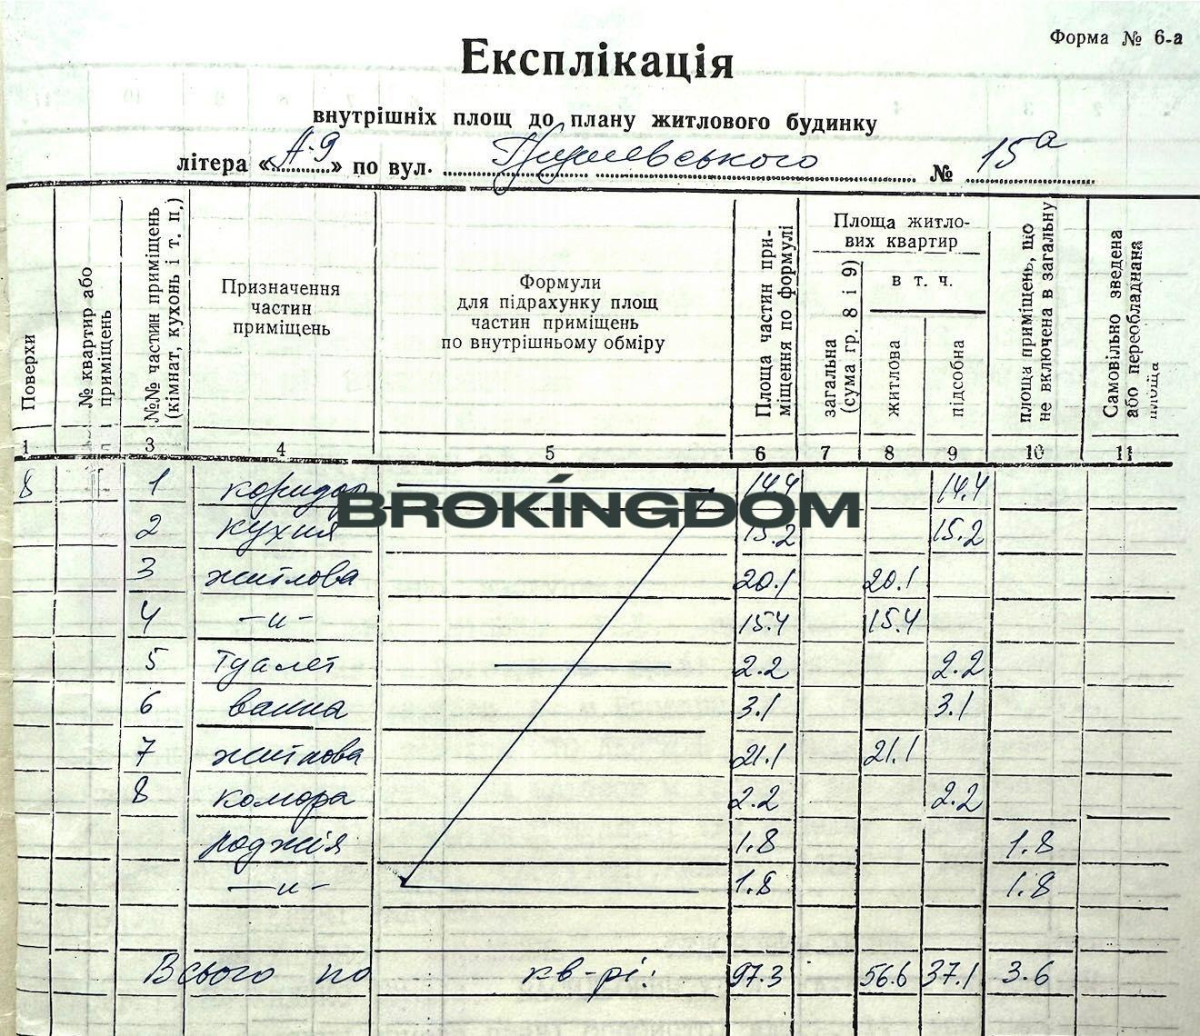 Форма № 6-а
Експлікація
внутрішніх площ до плану житлового будинку
літера «А-9» по вул. № 15а
Поверхи
№ квартир або приміщень
№№ частин приміщень (кімнат, кухонь і т. п.)
Призначення частин приміщень
Формули для підрахунку площ частин приміщень по внутрішньому обміру
Площа частин приміщення по формулі
Площа житлових квартир
загальна (сума гр. 8 і 9)
в т. ч.
житлова
підсобна
площа приміщень, що не включена в загальну
Самовільно зведена або переобладнана площа
1 3 4 5 6 7 8 9 10 11
8 1 коридор 14.4 14.4
BROKINGDOM
2 кухня 15.2 15.2
3 житлова 20.1 20.1
4 —и— 15.4 15.4
5 туалет 2.2 2.2
6 ванна 3.1 3.1
7 житлова 21.1 21.1
8 комора 2.2 2.2
лоджія 1.8 1.8
—и— 1.8 1.8
Всього по кв-рі: 97.3 56.6 37.1 3.6